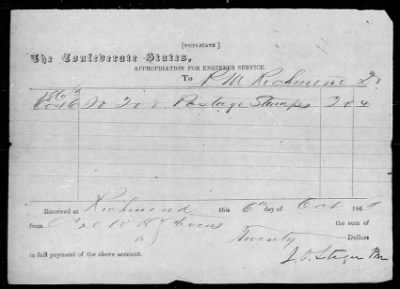 [DUPLICATE]
The Confederate States,
APPROPRIATION FOR ENGINEER SERVICE.
To P. M. Richmond Dr
1863
Oct 6 To 20 Postage Stamps 20
Received at Richmond this 6th day of Oct 186
from W H Stevens the sum of
Twenty Dollars
in full payment of the above account.
J. O. Steger PM